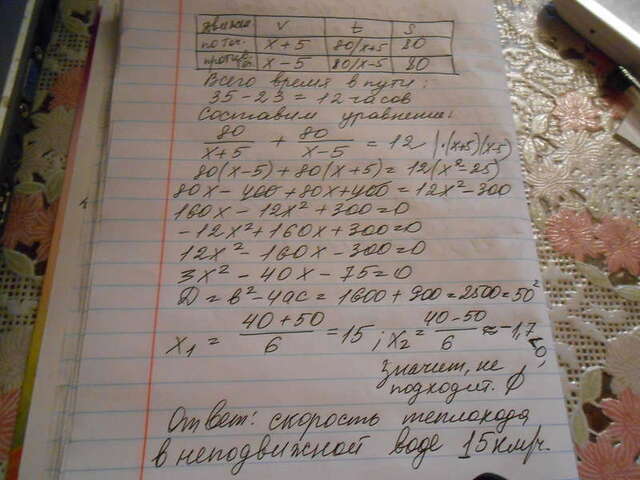 движен. v t s
по теч. x+5 80/x+5 80
против теч. x-5 80/x-5 80
Всего время в пути:
35-23=12 часов
Составим уравнение:
80/x+5 + 80/x-5 = 12 | ·(x+5)(x-5)
80(x-5)+80(x+5)=12(x²-25)
80x-400+80x+400=12x²-300
160x-12x²+300=0
-12x²+160x+300=0
12x²-160x-300=0
3x²-40x-75=0
D=b²-4ac=1600+900=2500=50²
x₁ = 40+50/6 = 15; x₂ = 40-50/6 ≈ -1,7
<0,
значит, не
подходит. ∅
Ответ: скорость теплохода
в неподвижной воде 15км/ч.